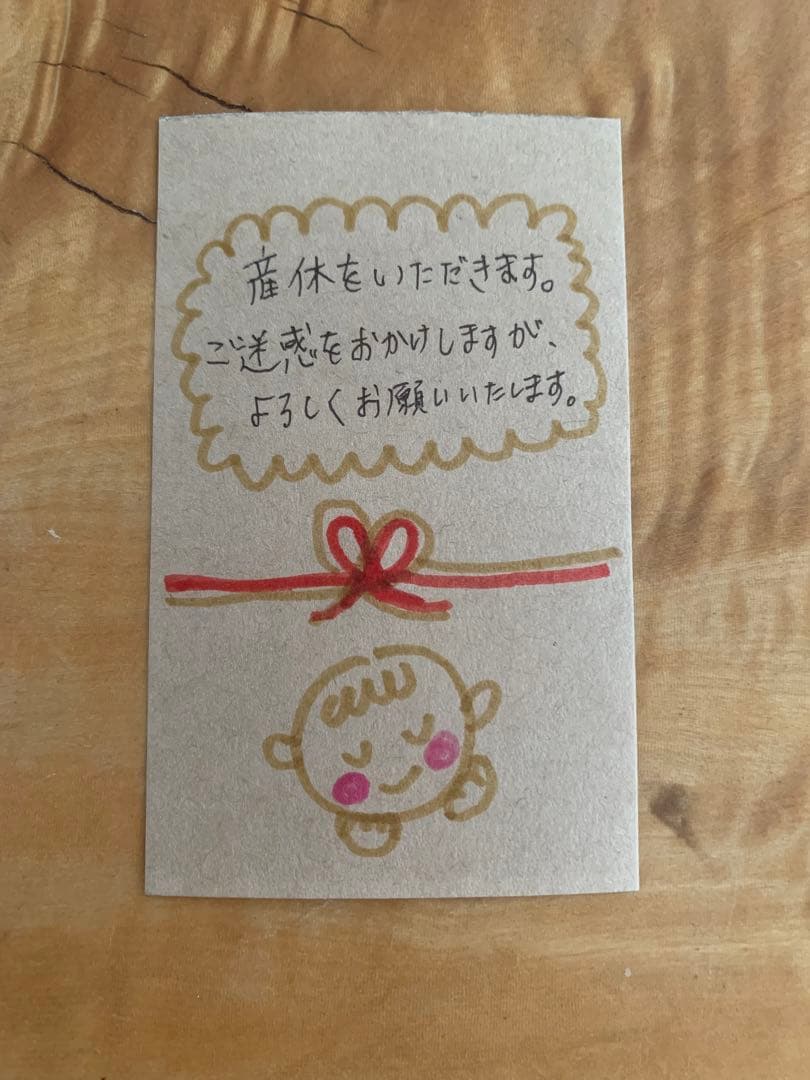 産休をいただきます。
ご迷惑をおかけしますが、
よろしくお願いいたします。